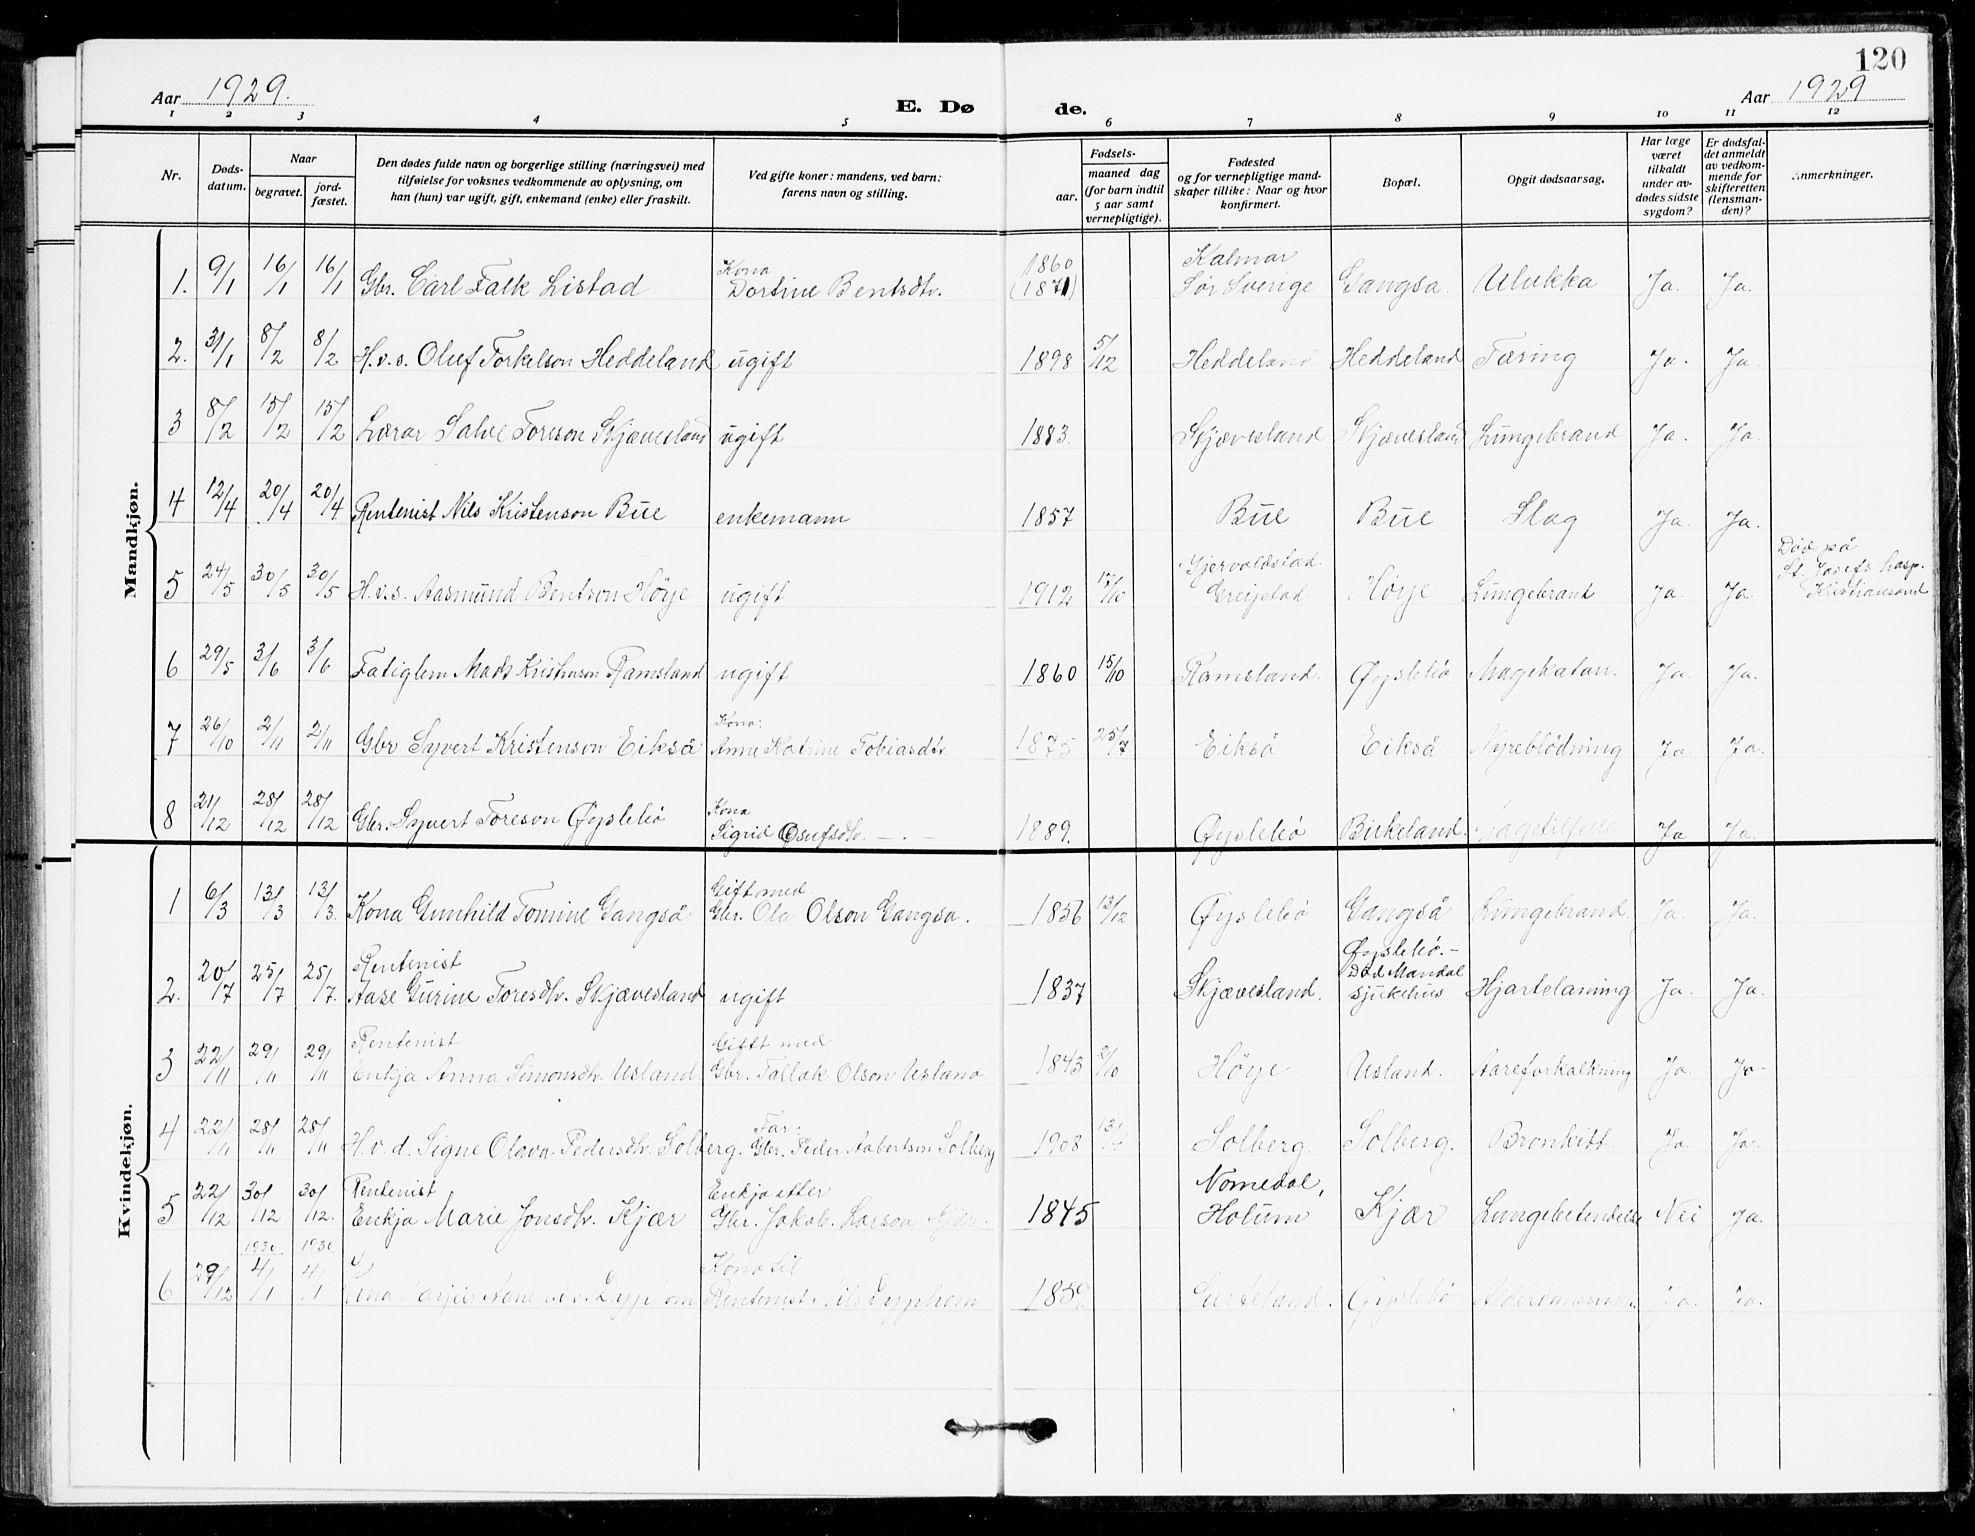 120
Aar 1929.
E. Døde.
Aar 1929
1 2 3 4 5 6 7 8 9 10 11 12
Nr.
Døds-
datum.
Naar
begravet.
jord-
fæstet.
Den dødes fulde navn og borgerlige stilling (næringsvei) med
tilføielse for voksnes vedkommende av oplysning, om
han (hun) var ugift, gift, enkemand (enke) eller fraskilt.
Ved gifte koner: mandens, ved barn:
farens navn og stilling.
Fødsels-
aar.
maaned dag
(for barn indtil
5 aar samt
vernepligtige).
Fødested
og for vernepligtige mand-
skaper tillike: Naar og hvor
konfirmert.
Bopæl.
Opgit dødsaarsag.
Har læge
været
tilkaldt
under av-
dødes sidste
sygdom?
Er dødsfal-
det anmeldt
av vedkom-
mende for
skifteretten
(lensman-
den)?
Anmerkninger.
Mandkjøn.
1. 9/1 16/1 16/1 Gbr. Carl Falk Listad Kona Dortine Bentsdtr. 1860 (1871) Kalmar Sør Sverige Gangså Ulukka Ja. Ja.
2. 31/1 8/2 8/2 H.v.s. Oluf Torkelson Heddeland ugift 1898 5/12 Heddeland Heddeland Tæring Ja. Ja.
3 8/2 15/2 15/2 Lærar Salve Toreson Skjævesland ugift 1883. Skjævesland Skjævesland Lungebrand Ja. Ja.
4 12/4 20/4 20/4 Rentenist Nils Kristenson Bue enkemann 1857 Bue Bue Slag Ja. Ja.
5 24/5 30/5 30/5 H.v.s. Aasmund Bentson Høye ugift 1912 17/10 Gjervoldstad Greipstad Høye Lungebrand Ja. Ja. Død på St. Josefs hosp. Kristiansand
6 29/5 3/6 3/6 Fatiglem Mads Kristenson Ramsland ugift 1860 15/10 Ramsland. Øyslebö Magekatarr. Ja. Ja.
7 26/10 2/11 2/11 Gbr. Syvert Kristenson Eikså Kona: Anne Katrine Tobiasdtr. 1875 25/7 Eikså Eikså Nyreblödning Ja. Ja.
8 21/12 28/12 28/12 Gbr. Syvert Toreson Øyslebö Kona Sigrid Olufsdtr. 1889. Øyslebö Birkeland. Ja Ja.
Kvindekjøn.
1 6/3 13/3 13/3. Kona Gunhild Tomine Gangså Gift med Gbr. Ola Olson Gangså. 1856 13/12 Øyslebö Gangså Lungebrand Ja. Ja.
2. 20/7 25/7 25/7. Rentenist Aase Gurine Toresdtr. Skjævesland ugift 1837 Skjævesland. Øyslebö.- Död Mandal sjukehus Hjartelaming Ja. Ja.
3 22/11 29/11 29/11 Rentenist Enkja Anna Simonsdtr. Usland. Gift med Gbr. Tallak Olson Usland. 1843 2/10 Høye Usland. Aareforkalkning Ja. Ja
4 22/11 28/11 28/11 H.v.d. Signe Olava Pedersdtr. Solberg. Far: Gbr. Peder Aabertson Solberg 1908 Solberg. Solberg. Bronkitt Ja. Ja.
5 22/12 30/12 30/12. Rentenist Enkja Marie Jonsdtr. Kjær Enkja etter Gbr. Jakob Larson Kjær. 1845 Nomedal, Holum Kjær Lungebetendelse Nei Ja.
6 29/12 1930 4/1 1930 4/1 Dyphom Kona til Rentenist Nils Dyphom 1859. Øyslebö Ja. Ja.